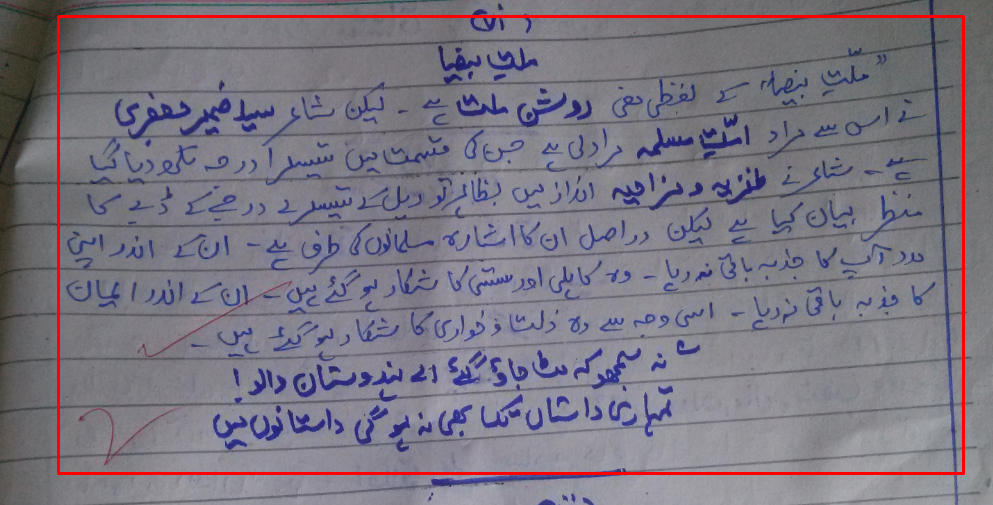 ملتِ بیضیا
"ملّتِ بیضیا" کے لفظی معنی روشن ملت ہے ۔ لیکن شاعر سید ضمیر جعفری
نے اس سے مراد امّتِ مسلمہ مراد لی ہے جس کی قسمت میں تیسرا درجہ لکھ دیا گیا
ہے ۔ شاعر نے طنزیہ و مزاحیہ انداز میں بظاہر تو ریل کے تیسرے درجے کے ڈبے کا
منظر بیان کیا ہے لیکن دراصل ان کا اشارہ مسلمانوں کی طرف ہے ۔ ان کے اندر اپنی
مدد آپ کا جذبہ باقی نہ رہا ۔ وہ کاہلی اور سستی کا شکار ہو گئے ہیں ۔ ان کے اندر ایمان
کا جذبہ باقی نہ رہا ۔ اسی وجہ سے وہ ذلت و خواری کا شکار ہو گئے ہیں ۔
نہ سمجھو گے مٹ جاؤ گئے اے ہندوستان والو !
تمہاری داستاں تک بھی نہ ہو گی داستانوں میں